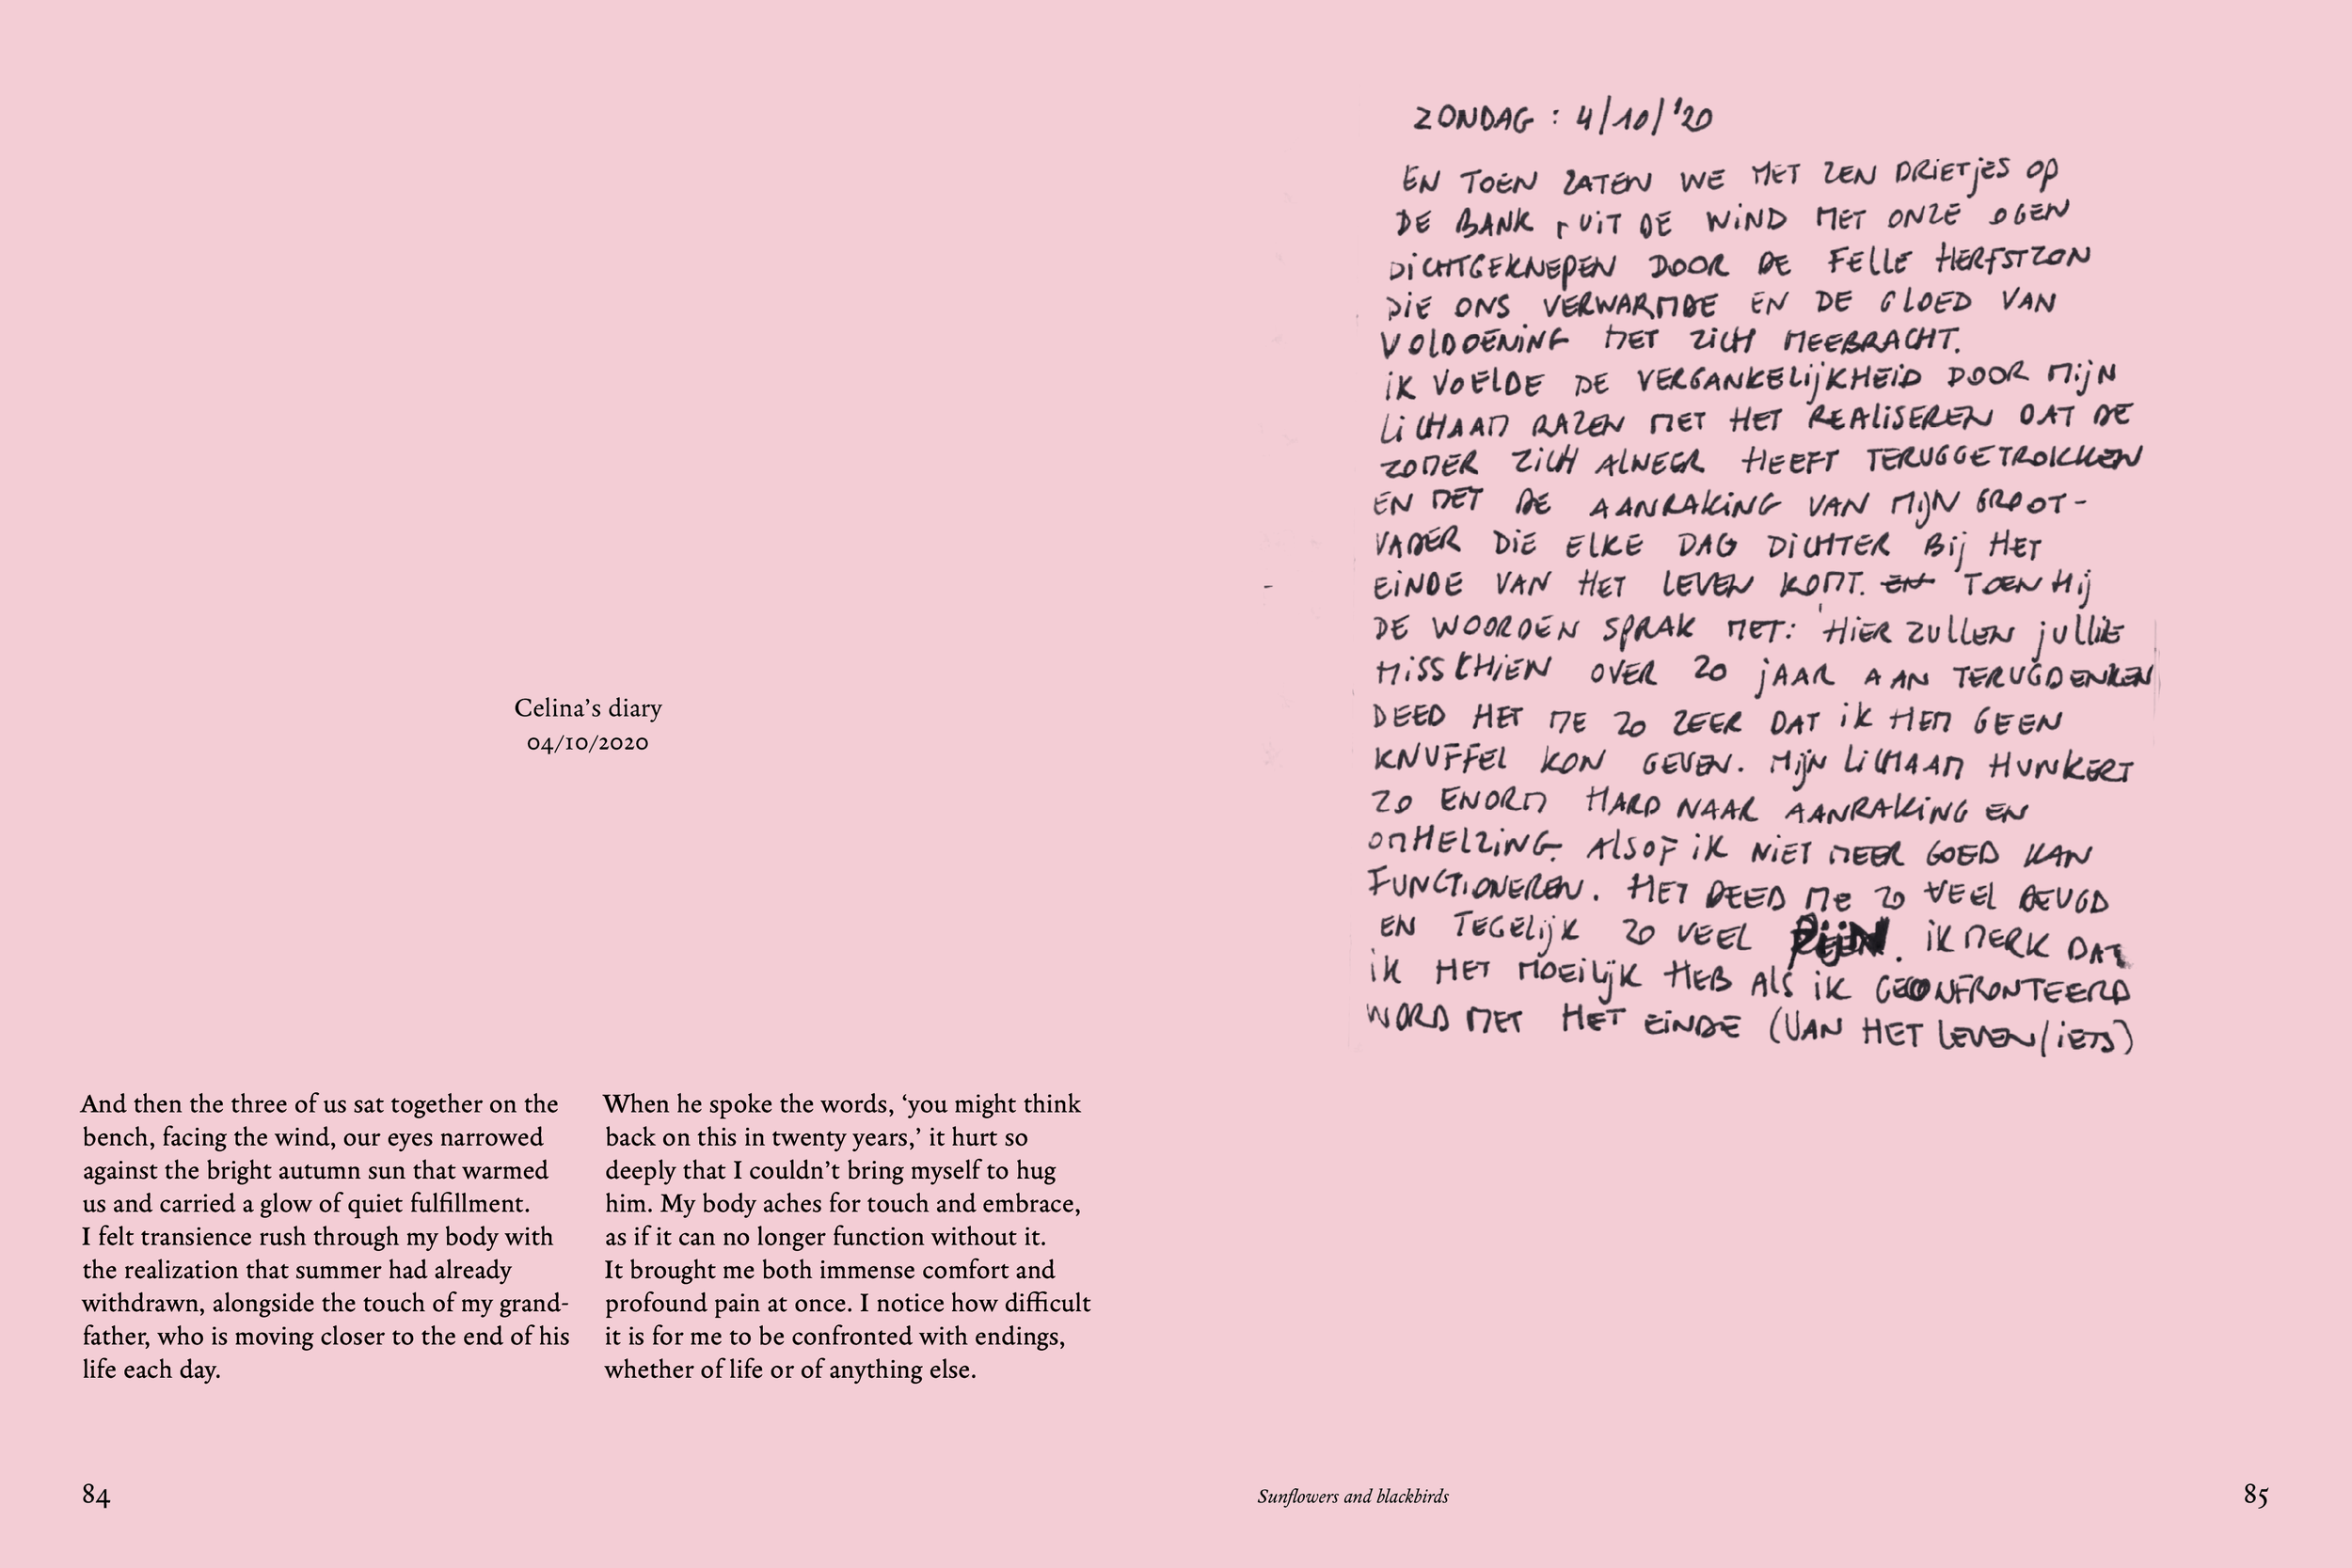 Celina’s diary
04/10/2020
And then the three of us sat together on the
bench, facing the wind, our eyes narrowed
against the bright autumn sun that warmed
us and carried a glow of quiet fulfillment.
I felt transience rush through my body with
the realization that summer had already
withdrawn, alongside the touch of my grand-
father, who is moving closer to the end of his
life each day.
When he spoke the words, ‘you might think
back on this in twenty years,’ it hurt so
deeply that I couldn’t bring myself to hug
him. My body aches for touch and embrace,
as if it can no longer function without it.
It brought me both immense comfort and
profound pain at once. I notice how difficult
it is for me to be confronted with endings,
whether of life or of anything else.
84
ZONDAG : 4/10/'20
EN TOEN ZATEN WE MET ZEN DRIETJES OP
DE BANK, UIT DE WIND MET ONZE OGEN
DICHTGEKNEPEN DOOR DE FELLE HERFSTZON
DIE ONS VERWARMDE EN DE GLOED VAN
VOLDOENING MET ZICH MEEBRACHT.
IK VOELDE DE VERGANKELIJKHEID DOOR MIJN
LICHAAM RAZEN MET HET REALISEREN DAT DE
ZOMER ZICH ALWEER HEEFT TERUGGETROKKEN
EN MET DE AANRAKING VAN MIJN GROOT-
VADER DIE ELKE DAG DICHTER BIJ HET
EINDE VAN HET LEVEN KOMT. EN TOEN HIJ
DE WOORDEN SPRAK MET: 'HIER ZULLEN JULLIE
MISSCHIEN OVER 20 JAAR AAN TERUGDENKEN
DEED HET ME ZO ZEER DAT IK HEM GEEN
KNUFFEL KON GEVEN. MIJN LICHAAM HUNKERT
ZO ENORM HARD NAAR AANRAKING EN
OMHELZING. ALSOF IK NIET MEER GOED KAN
FUNCTIONEREN. HET DEED ME ZO VEEL DEUGD
EN TEGELIJK ZO VEEL PIJN. IK MERK DAT
IK HET MOEILIJK HEB ALS IK GECONFRONTEERD
WORD MET HET EINDE (VAN HET LEVEN/IETS)
Sunflowers and blackbirds
85